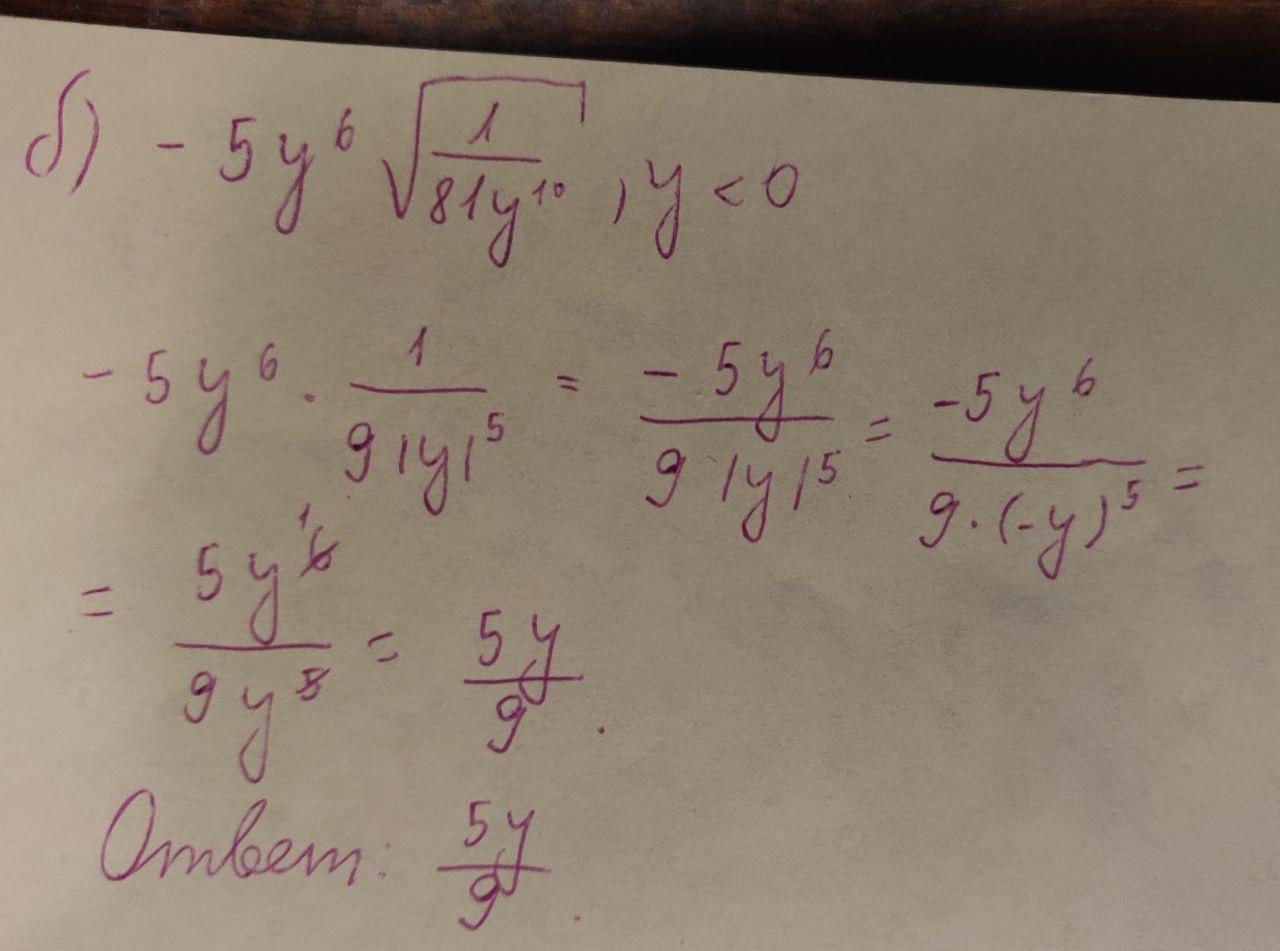 б) - 5y⁶ √(1/(81y¹⁰)), y < 0
- 5y⁶ · 1/(9|y|⁵) = (- 5y⁶)/(9|y|⁵) = (-5y⁶)/(9·(-y)⁵) =
= (5y⁶)/(9y⁵) = 5y/9.
Ответ: 5y/9.